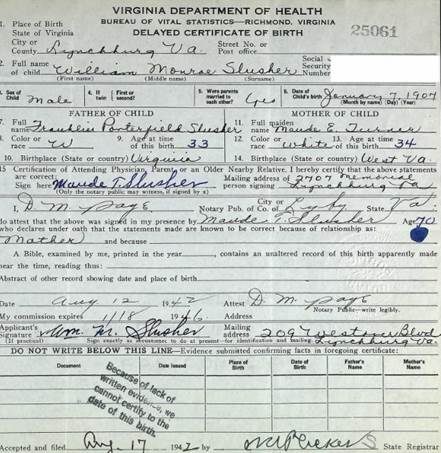 VIRGINIA DEPARTMENT OF HEALTH
BUREAU OF VITAL STATISTICS—RICHMOND, VIRGINIA
DELAYED CERTIFICATE OF BIRTH
25061
1. Place of Birth
State of Virginia
City or County Lynchburg Va. Street No. or Post office
2. Full name of child William Monroe Slusher Social Security Number
(First name) (Middle name) (Surname)
3. Sex of Child Male 4. If twin First or 5. Were parents married to each other? Yes 6. Date of Child's birth January 7, 1904
(Month by name) (Day) (Year)
FATHER OF CHILD MOTHER OF CHILD
7. Full name Franklin Porterfield Slusher 11. Full maiden name Maude E. Turner
8. Color or race W 9. Age at time of this birth 33 12. Color or race White 13. Age at time of this birth 34
10. Birthplace (State or Country) Virginia 14. Birthplace (State or Country) West Va.
15 Certification of Attending Physician, Parent, or an Older Nearby Relative, I hereby certify that the above statements are correct:
Sign here Maude T. Slusher Mailing address of person signing 2707 Memorial Lynchburg Va
(Only the notary public may witness, if signed by x)
I, D. M. Page Notary Pub. of City or Co. Lynby State Va.
do attest that the above was signed in my presence by Maude T. Slusher Age 70
who declares under oath that the statements made are known to be correct because of relationship as:
Mother and because
A Bible, examined by me, printed in the year, contains an unaltered record of this birth apparently made
near the time, reading thus:
Abstract of other record showing date and place of birth.
Date Aug 12 1942 Attest D. M. Page
My commission expires 1/18 1946 Notary Public—write legibly.
Applicant's Signature Wm. M. Slusher Mailing address 2097 Blvd Lynchburg Va.
DO NOT WRITE BELOW THIS LINE—Evidence submitted confirming facts in foregoing certificate:
Document Date Issued Place of Birth Date of Birth Father's Name Mother's Maiden Name
Because of lack of
written evidence, we
cannot certify to the
date of this birth.
Accepted and filed Aug. 17 1942 by State Registrar